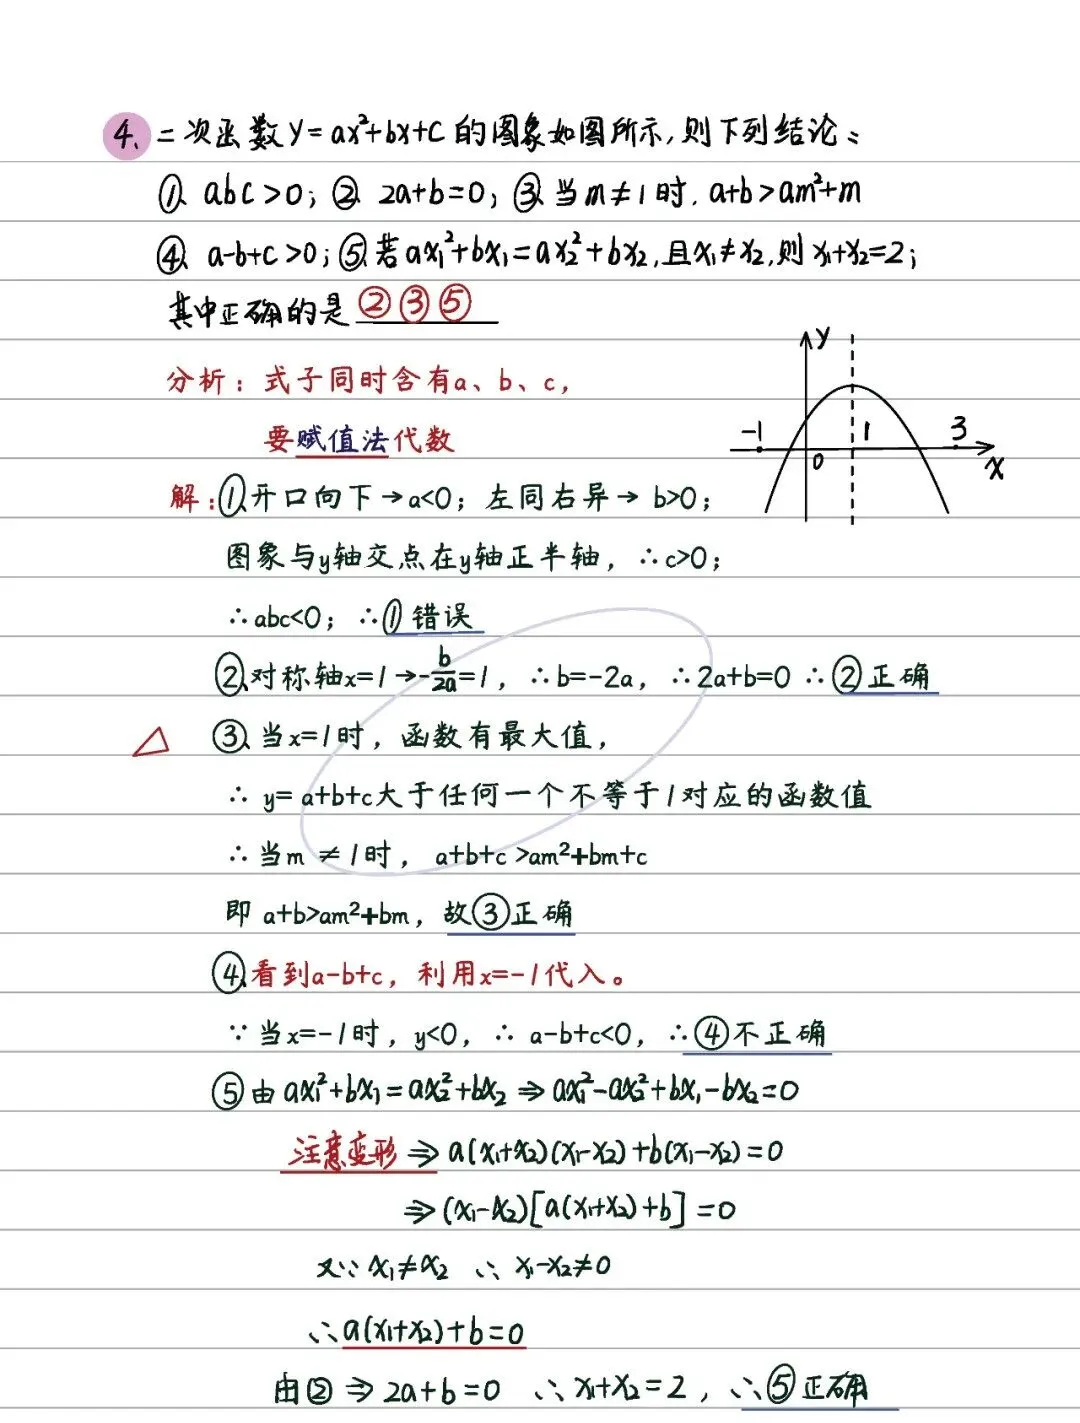 4、二次函数y=ax²+bx+c的图象如图所示,则下列结论:
①、abc>0; ②、2a+b=0; ③、当m≠1时. a+b>am²+m
④、a-b+c>0; ⑤、若ax₁²+bx₁=ax₂²+bx₂,且x₁≠x₂,则x₁+x₂=2;
其中正确的是②③⑤
y
-1 0 1 3 x
分析:式子同时含有a、b、c,
要赋值法代数
解:①、开口向下→a<0;左同右异→b>0;
图象与y轴交点在y轴正半轴,∴c>0;
∴abc<0;∴①错误
②、对称轴x=1→-b/2a=1,∴b=-2a,∴2a+b=0∴②正确
③、当x=1时,函数有最大值,
∴y=a+b+c大于任何一个不等于1对应的函数值
∴当m≠1时,a+b+c>am²+bm+c
即a+b>am²+bm,故③正确
④、看到a-b+c,利用x=-1代入。
∵当x=-1时,y<0,∴a-b+c<0,∴④不正确
⑤由ax₁²+bx₁=ax₂²+bx₂⇒ax₁²-ax₂²+bx₁-bx₂=0
注意变形⇒a(x₁+x₂)(x₁-x₂)+b(x₁-x₂)=0
⇒(x₁-x₂)[a(x₁+x₂)+b]=0
又∵x₁≠x₂ ∴x₁-x₂≠0
∴a(x₁+x₂)+b=0
由②⇒2a+b=0 ∴x₁+x₂=2,∴⑤正确